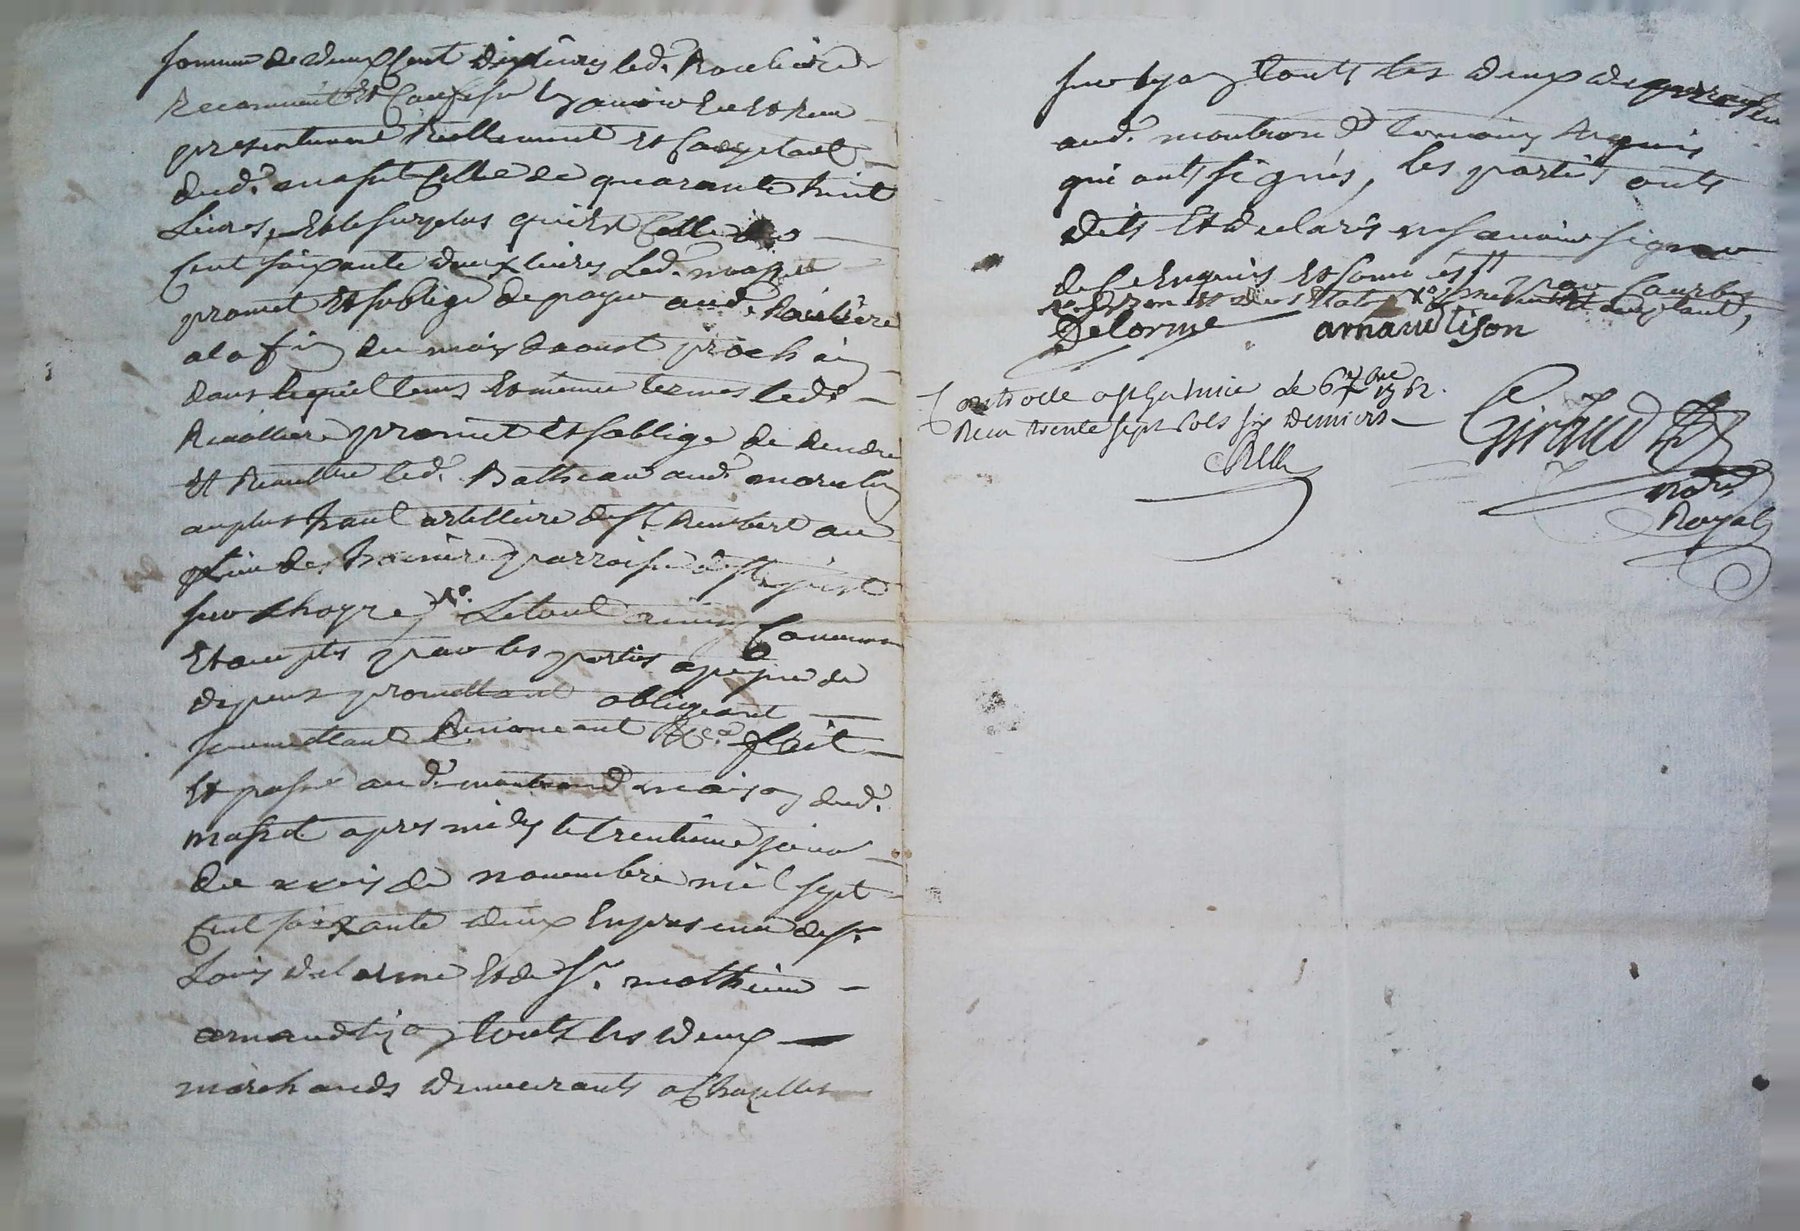 somme de deux Cent dix livres led.
Reconnoit Et Confesse avoir Eu Et Receu
presentement Reellement Et Comptant
dud. masset Celle de quarante huit
Livres, Et le surplus qui Est Celle de
Cent soixante deux livres Led. masset
promet Et soblige de payer aud. Rivollière
a la fin du mois daoust prochain
dans lequel tems Et même termes led.
Rivollière promet Et soblige de Rendre
Et Remettre led. Batteau aud.
au plus haut artelliere de St Rembert au
parroisse de St just
sur Loyre, Le tout Convenu
Et accepté par les parties a peyne de
depens promettant obligeant
soumettant Renoncant &c.a fait
Et passé aud. montrond maison dud.
masset apres midy le trentieme jour
du mois de novembre mil sept
Cent soixante deux En presence de sr.
Louis delorme Et de sr. mathieu
arnaud tison touts les deux
marchands demeurants a Chazelles
sur Lyon touts les deux de present
aud. montrond temoins Requis
qui onts signés, les parties onts
dits Et declarés ne savoir signer
de Ce Enquis Et sommés
Delorme arnaud tison
Controllé a St Galmier le 6 xbre 1762.
Receu trente sept sols six deniers
Giraud
Nore
Royal